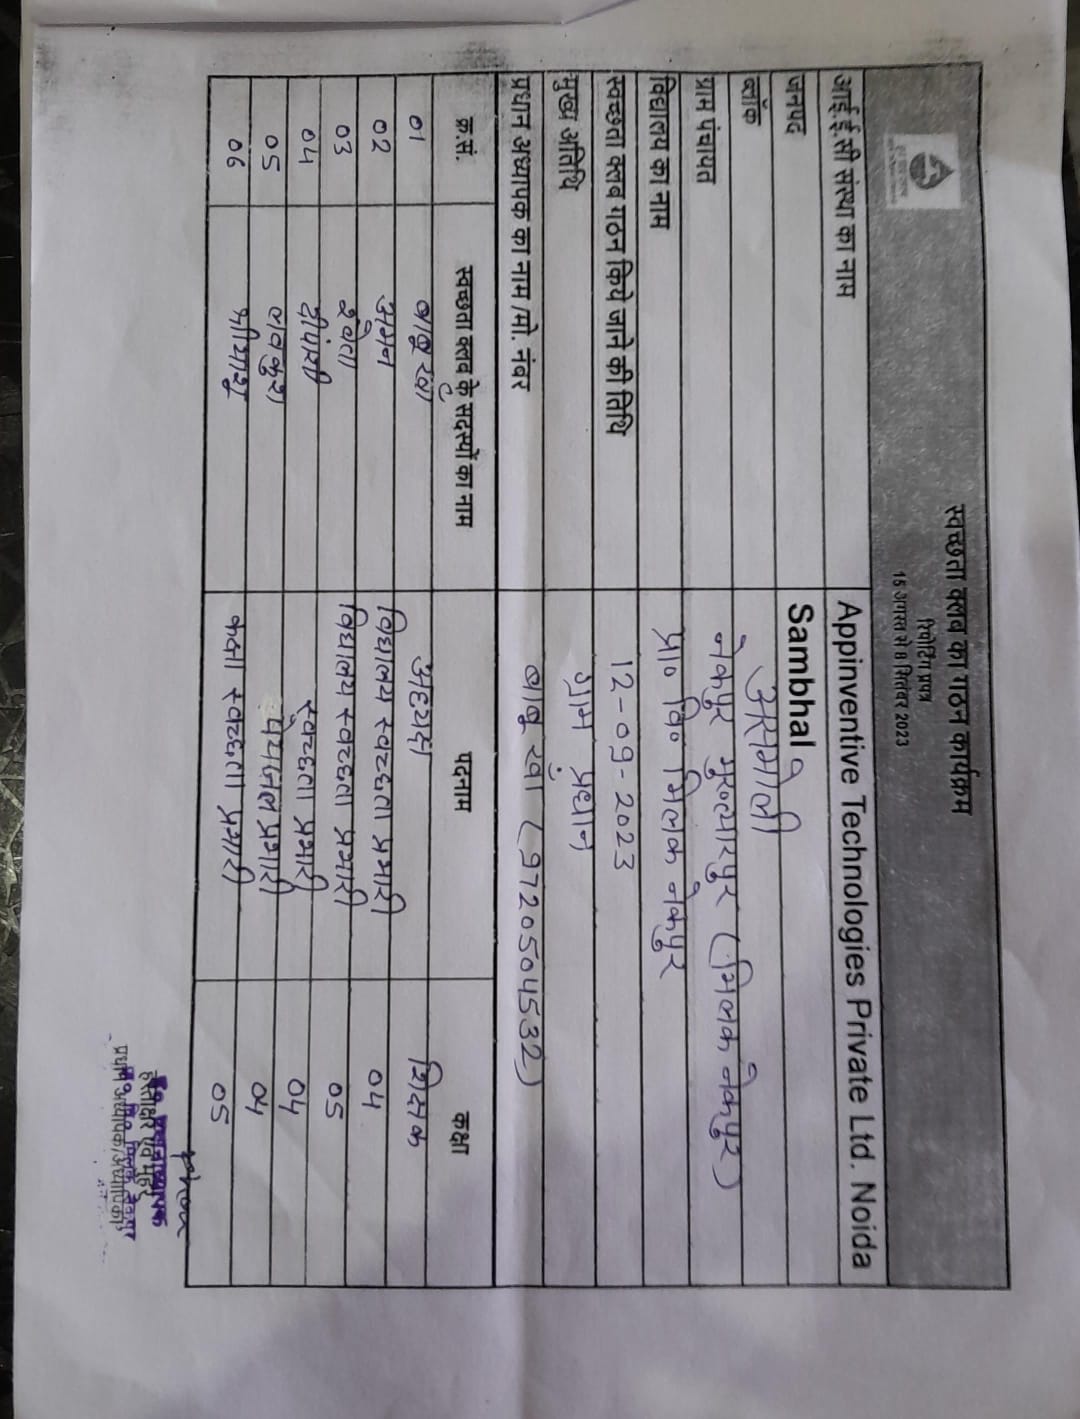 स्वच्छता क्लब का गठन कार्यक्रम
रिपोर्टिंग प्रपत्र
15 अगस्त से 8 सितंबर 2023
आई.ई.सी संस्था का नाम Appinventive Technologies Private Ltd. Noida
जनपद Sambhal
ब्लॉक असमोली
ग्राम पंचायत नेकपुर मुख्त्यारपुर (मिलक नेकपुर)
विद्यालय का नाम प्रा० वि० मिलक नेकपुर
स्वच्छता क्लब गठन किये जाने की तिथि 12-09-2023
मुख्य अतिथि ग्राम प्रधान
प्रधान अध्यापक का नाम /मो. नंबर बाबू खां (9720504532)
क्र.सं. स्वच्छता क्लब के सदस्यों का नाम पदनाम कक्षा
01 बाबू खां अध्यक्ष शिक्षक
02 अमन विद्यालय स्वच्छता प्रभारी 04
03 श्वेता विद्यालय स्वच्छता प्रभारी 05
04 दीपांशी स्वच्छता प्रभारी 04
05 लवकुश पेयजल प्रभारी 04
06 कक्षा स्वच्छता प्रभारी 05
हस्ताक्षर एवं मुहर
प्रधान अध्यापक/अध्यापिका